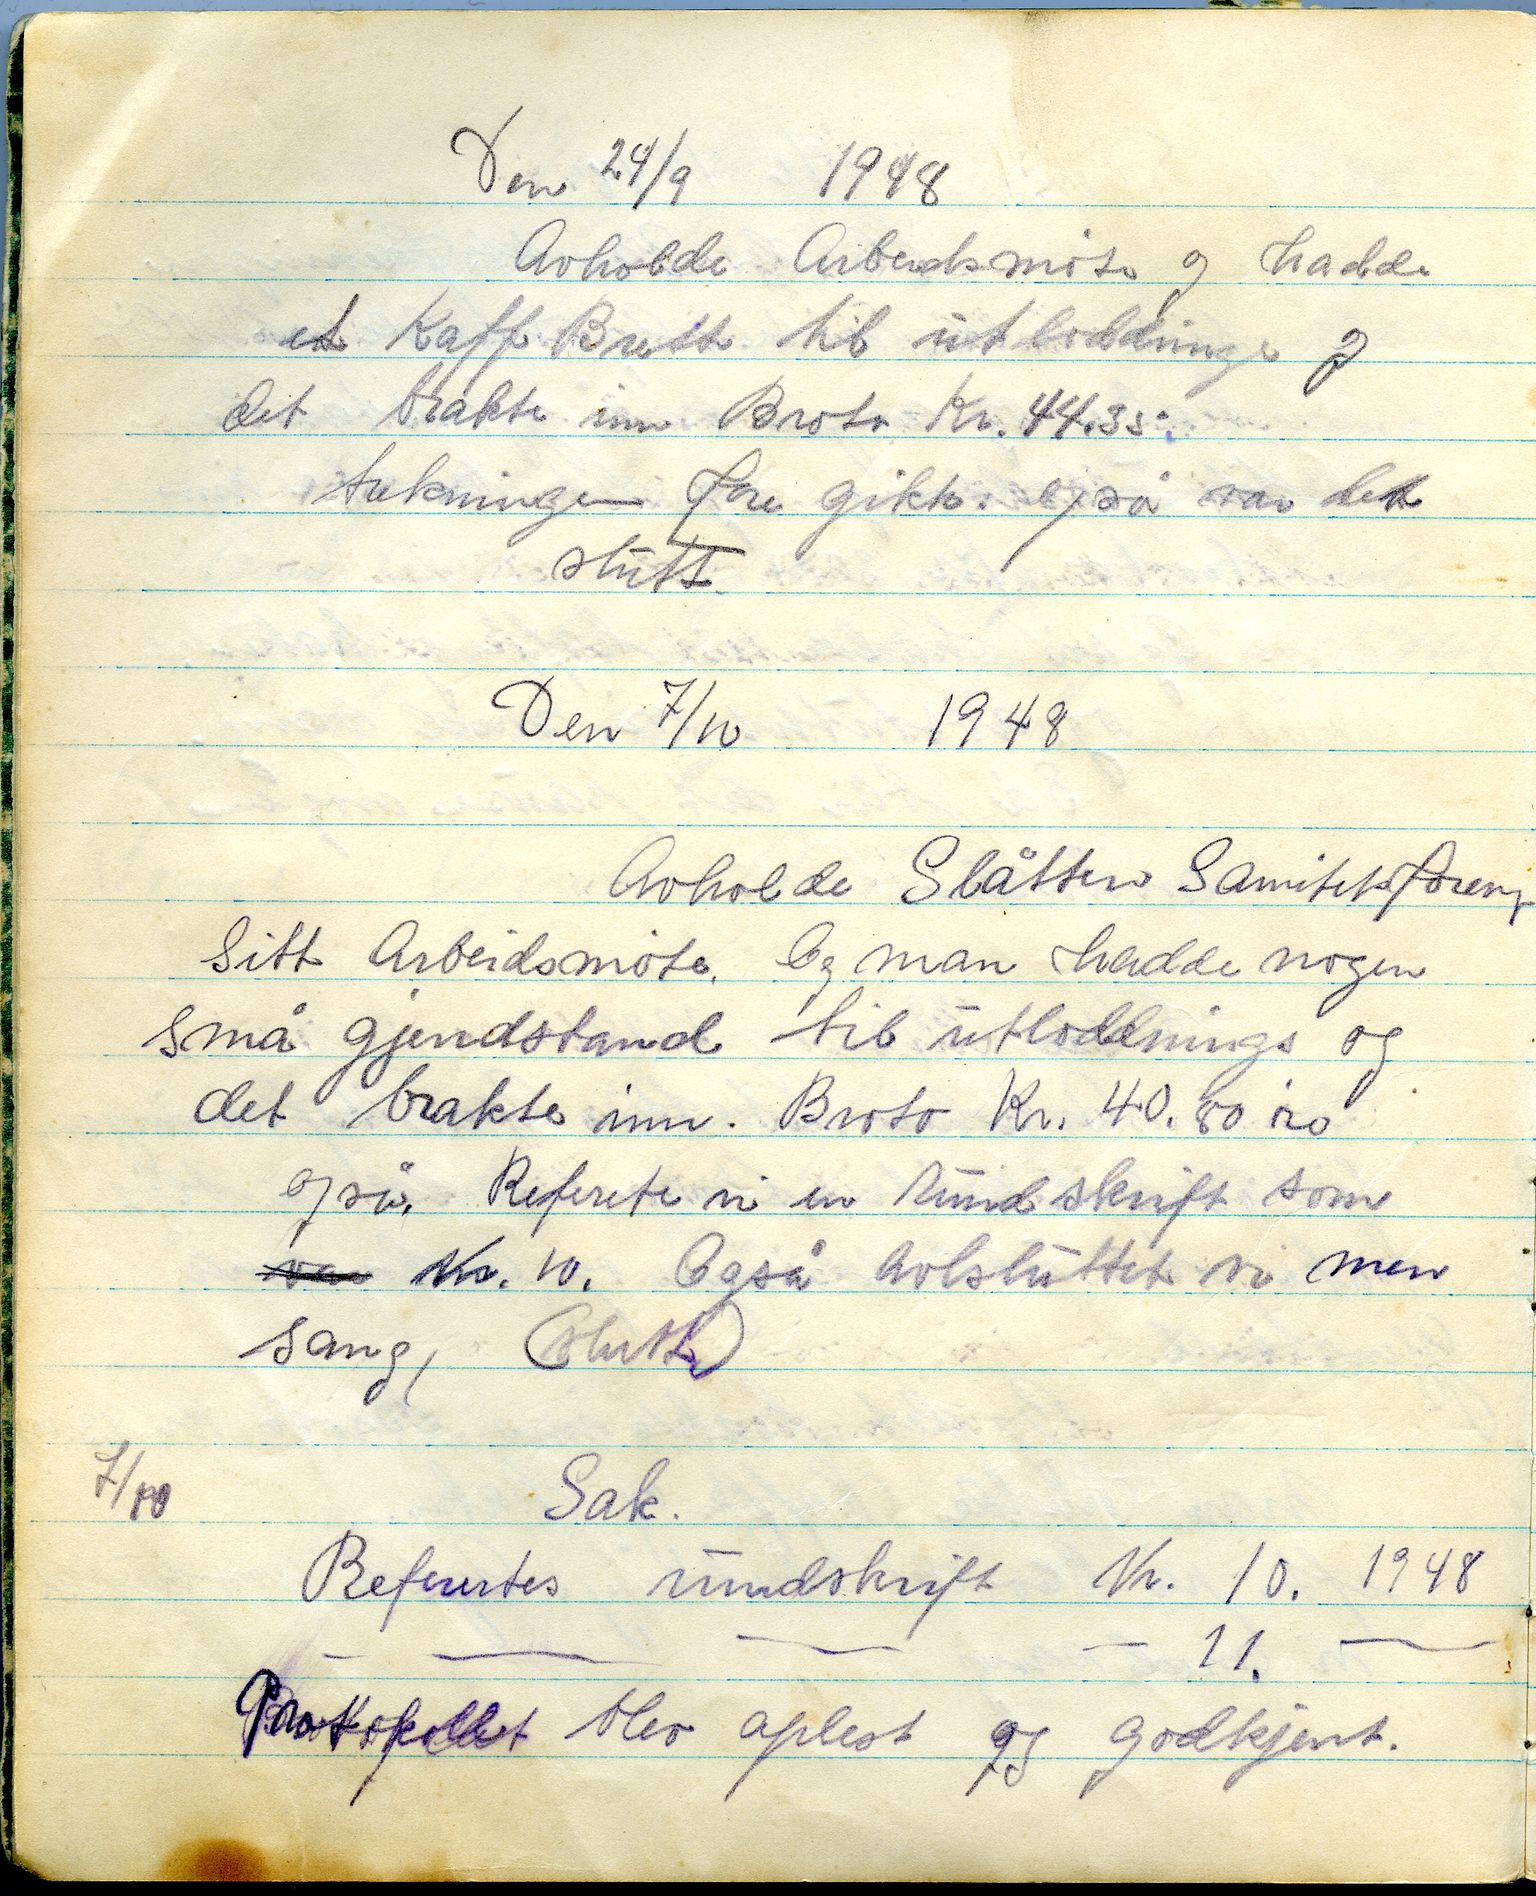 Den 24/9 1948
Avholde Arbeidsmöte og hadde
et Kaffe Brett til utloddning og
det brakte inn Broto Kr. 44.35.
trekningen fore gikk. også var det
slutt.
Den 7/10 1948
Avholde Slåtten Sanitetsforeng
sitt Arbeidsmöte. Og man hadde nogen
små gjendstand til utloddnings og
det brakte inn. Broto Kr. 40.80 öre
også. Referete vi en rundskrift som
var Nr. 10. Også Avsluttet vi men
sang, (slutt)
7/10 Sak.
Refertes rundskrift Nr. 10. 1948
— — — — 11. —
Prottokollet blev oplest og godkjent.